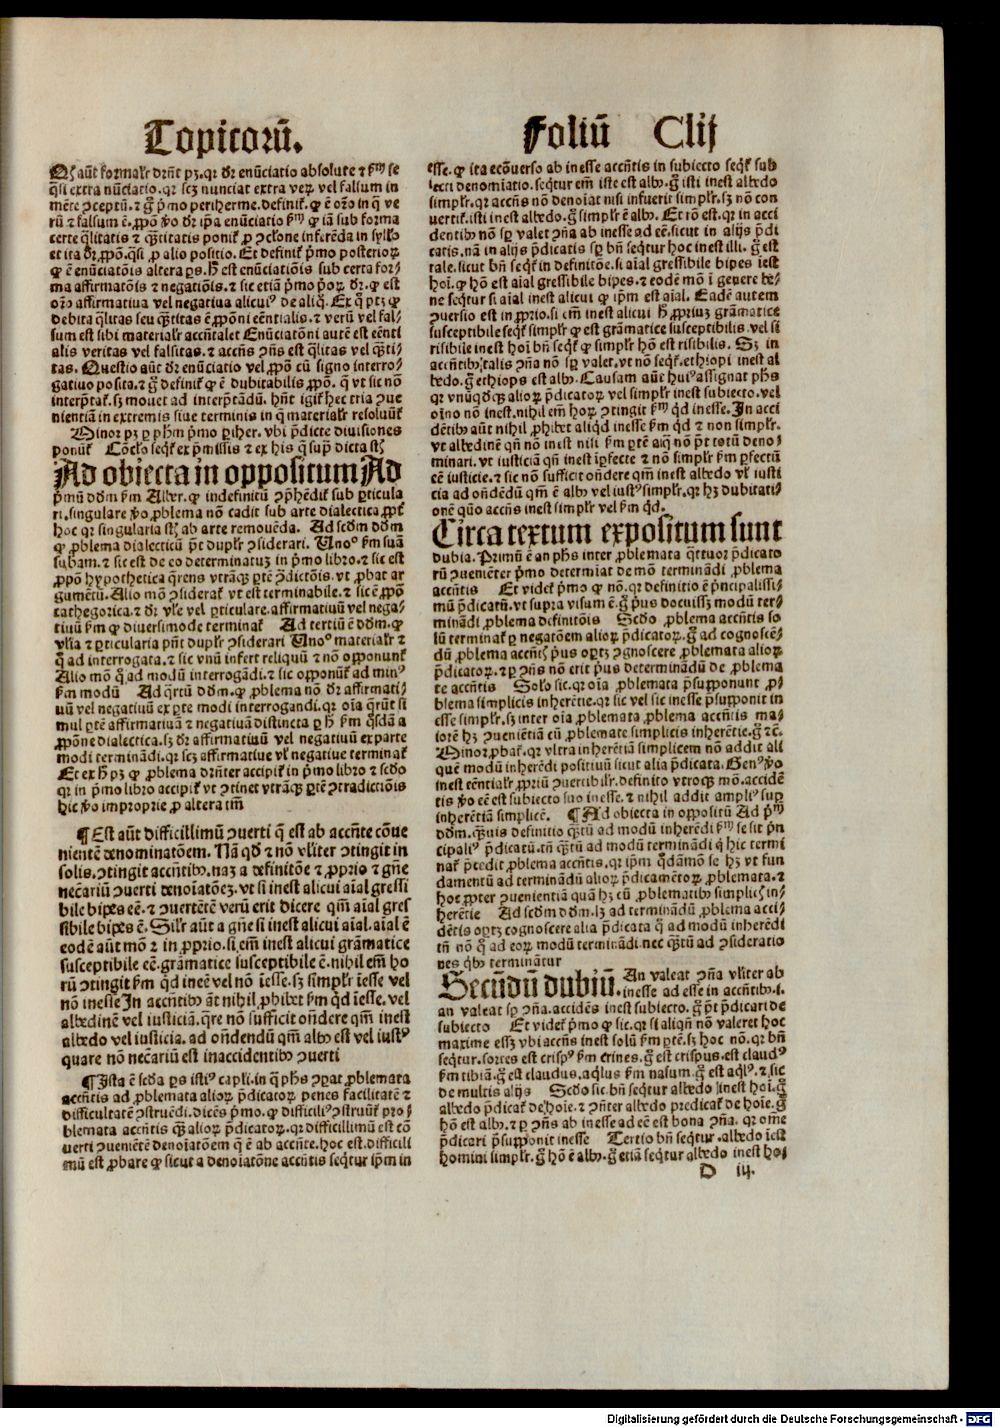 Topicorū.
Foliū Clij
Qȝ aūt formalr̄ drn̄t pȝ. qr dr̄ enūciatio absolute ⁊ ẜm se
q̄si extra nūciatio. qr scȝ nunciat extra verū vel falsum in
mēte ↄceptū. ⁊ g̊ p̄mo periherme. definit̄. ꝙ ē or̄o in q̄ ve
rū ⁊ falsum ē. ꝓpō v̊o dr̄ ip̄a enūciatio ẜm ꝙ iā sub forma
certe q̄litatis ⁊ qn̄titatis ponit̄ ꝓ ↄcl̄one inferēda in syll̄o
et ita dr̄ ꝓpō. q̄si ꝓ alio positio. Et definit̄ p̄mo posteriorꝝ
ꝙ ē enūciatōis altera ꝑs. Hˀ est enūciatiōis sub certa for⸗
ma affirmatōis ⁊ negatiōis. ⁊ sic etiā p̄mo p̄orꝝ dr̄. ꝙ est
or̄o affirmatiua vel negatiua alicuiꝰ de aliq̊. Ex q̊ ptȝ ꝙ
debita q̄litas seu qn̄titas ē ꝓpōni eēntialis. ⁊ verū vel fal⸗
sum est sibi materialr̄ accn̄talet Enūciatōni autē est eēnti
alis veritas vel falsitas. ⁊ accn̄s ↄn̄s est q̄litas vel qn̄ti⸗
tas. Questio aūt dr̄ enūciatio vel ꝓpō cū signo interro⸗
gatiuo posita. ⁊ g̊ definit̄ ꝙ ē dubitabilis ꝓpō. q̄ vt sic nō
interp̄tat̄. sȝ mouet ad interp̄tādū. hn̄t igit̄ hec tria ↄue
nientiā in extremis siue terminis in q̄ materialr̄ resoluūt̄
Minor pȝ ꝑ ph̄m p̄mo ꝑiher. vbi p̄dicte diuisiones
ponūt̄ Cōcl̄o seqt̄ ex p̄missis ⁊ ex his q̄ supͣ dicta st̄
Ad obiecta in oppositum Ad
p̄mū dd̄m ẜm Alber. ꝙ indefinitū ↄp̄hēdit̄ sub ꝑticula
ri. singulare v̊o ꝓblema nō cadit sub arte dialectica ꝓpt̄
hoc qr singularia st̄ ab arte remouēda. Ad scd̄m dd̄m
ꝙ ꝓblema dialecticū pōt duplr̄ ↄsiderari. Unoͦ ẜm suā
sub̄am. ⁊ sic est de eo determinatuȝ in p̄mo libro. ⁊ sic est
ꝓpō hypothetica q̄rens vtrāqȝ ꝑtē ↄdictōis. vt ꝓbat ar
gumētū. Alio mō ↄsiderat̄ vt est terminabile. ⁊ sic ē ꝓpō
cathegorica. ⁊ dr̄ vl̄e vel ꝑticulare. affirmatiuū vel nega⸗
tiuū ẜm ꝙ diuersimode terminat̄ Ad tertiū ē dd̄m. ꝙ
vl̄ia ⁊ ꝑticularia pn̄t duplr̄ ↄsiderari Unoͦ materialr̄ ⁊
q̄ ad interrogata. ⁊ sic vnū infert reliquū ⁊ nō oppōnunt̄
Alio mō q̄ ad modū interrogandi. ⁊ sic opponūt̄ ad minꝰ
ẜm modū Ad q̄rtū dd̄m. ꝙ ꝓblema nō dr̄ affirmati⸗
uū vel negatiuū ex ꝑte modi interrogandi. qr oīa q̄rūt si
mul ꝑtē affirmatiuā ⁊ negatiuā distincta ꝑ hˀ ẜm qd̄ā a
ꝓpōne dialectica. sȝ dr̄ affirmatiuū vel negatiuū ex parte
modi terminādi. qr scȝ affirmatiue vl̄ negatiue terminat̄
Et ex hˀ pȝ ꝙ ꝓblema drn̄ter accipit̄ in p̄mo libro ⁊ scd̄o
qr in p̄mo libro accipit̄ vt ↄtinet vtrāqȝ ꝑtē ↄtradictiōis
hic v̊o improprie ꝓ altera tm̄
¶ Est aūt difficillimū ↄuerti q̄ est ab accn̄te cōue
nientē denominatōem. Nā qd̄ ⁊ nō vl̄iter ↄtingit in
solis. ↄtingit accn̄tibꝰ. naȝ a definitōe ⁊ ꝓprio ⁊ gn̄e
necāriū ↄuerti denoiatōeȝ. vt si inest alicui aīal gressi
bile bipes eē. ⁊ ↄuertētē verū erit dicere qm̄ aīal gres
sibile bipes ē. Silr̄ aūt a gn̄e si inest alicui aīal. aīal ē
eodē aūt mō ⁊ in ꝓprio. si em̄ inest alicui grāmatice
susceptibile eē. grāmatice susceptibile ē. nihil em̄ ho
rū ↄtingit ẜm qd̄ ineē vel nō īesse. sȝ simplr̄ īesse vel
nō inesse In accn̄tibꝰ aūt nihil ꝓhibet ẜm qd̄ īesse. vel
albedinē vel iusticiā. q̄re nō sufficit on̄dere qm̄ inest
albedo vel iusticia. ad on̄dendū qm̄ albꝰ est vel iustꝰ
quare nō necāriū est inaccidentibꝰ ↄuerti
¶ Ista ē scd̄a ꝑs istiꝰ capl̄i. in q̄ ph̄s ↄꝑat ꝓblemata
accn̄tis ad ꝓblemata aliorꝝ p̄dicatorꝝ penes facilitatē ⁊
difficultatē ↄstruēdi. dicēs p̄mo. ꝙ difficiliꝰ ↄstruūt̄ pro⸗
blemata accn̄tis qͣȝ aliorꝝ p̄dicatorꝝ. qr difficillimū est cō
uerti ↄueniētē denoīatōem q̄ ē ab accn̄te. hoc est. difficilli
mū est ꝓbare ꝙ sicut a denoiatōne accn̄tis seqt̄ur ip̄m in
esse. ꝙ ita ecōuerso ab inesse accn̄tis in subiecto seqt̄ sub
iecti denomīatio. seqt̄ur em̄ iste est albꝰ. g̊ isti inest albedo
simplr̄. qr accn̄s nō denoīat nisi infuerit simplr̄. sȝ non con
uertit̄. isti inest albedo. g̊ simplr̄ ē albꝰ. Et rō est. qr in acci
dentibꝰ nō sꝑ valet ↄn̄a ab inesse ad eē. sicut in alijs p̄di
catis. nā in alijs p̄dicatis sꝑ bn̄ seqt̄ur hoc inest illi. g̊ est
tale. sicut bn̄ seqt̄ in definitōe. si aīal gressibile bipes īest
hoī. ꝙ hō est aīal gressibile bipes. ⁊ eodē mō ī genere be⸗
ne seqt̄ur si aīal inest alicui ꝙ ip̄m est aīal. Eadē autem
ↄuersio est in ꝓprio. si em̄ inest alicui hˀ ꝓpriuȝ grāmatice
susceptibile seqt̄ simplr̄ ꝙ est grāmatice susceptibilis. vel si
risibile inest hoī bn̄ seqt̄ ꝙ simplr̄ hō est risibilis. Sȝ in
accn̄tibꝰ talis ↄn̄a nō sꝑ valet. vt nō seqt̄. ethiopi inest al
bedo. g̊ ethiops est albꝰ. Causam aūt huiꝰ assignat ph̄s
qr vnūqdqȝ aliorꝝ p̄dicatorꝝ vel simplr̄ inest subiecto. vel
oīno nō inest. nihil em̄ horꝝ ↄtingit ẜm qd̄ inesse. In acci
dētibꝰ aūt nihil ꝓhibet aliqd inesse ẜm qd̄ ⁊ non simplr̄.
vt albedinē qn̄ nō inest nisi ẜm ꝑtē aīq̄ nō pōt totū deno⸗
minari. vt iusticiā qn̄ inest īꝑfecte ⁊ nō simplr̄ ẜm ꝑfectū
eē iusticie. ⁊ sic nō sufficit on̄dere qm̄ inest albedo vl̄ iusti
cia ad on̄dēdū qm̄ ē albꝰ vel iustꝰ simplr̄. qr hȝ dubitati⸗
onē qūo accn̄s inest simplr̄ vel ẜm qd̄.
Circa textum expositum sunt
dubia. Primū ē an ph̄s inter ꝓblemata q̄ttuor p̄dicato
rū ↄueniēter p̄mo determiat de mō terminādi ꝓblema
accn̄tis Et videt̄ p̄mo ꝙ nō. qr definitio ē p̄ncipalissi⸗
mū p̄dicatū. vt supra visum ē. g̊ p̄us docuissȝ modū ter⸗
minādi ꝓblema definitōis Scd̄o ꝓblema accn̄tis so
lū terminat̄ ꝑ negatōem aliorꝝ p̄dicatorꝝ. g̊ ad cognoscē⸗
dū ꝓblema accn̄tis p̄us oportȝ ↄgnoscere ꝓblemata aliorꝝ
p̄dicatorꝝ. ⁊ ꝑ ↄn̄s nō erit p̄us determinādū de ꝓblema
te accn̄tis Sol̄o sic. qr oīa ꝓblemata p̄supponunt ꝓ⸗
blema simplicis inherētie. qr sic vel sic inesse p̄supponit in
esse simplr̄. sȝ inter oīa ꝓblemata ꝓblema accn̄tis ma⸗
iorē hȝ ↄueniētiā cū ꝓblemate simplicis inherētie. g̊ ⁊c̄.
Minor ꝓbat̄. qr vltra inherētiā simplicem nō addit ali
quē modū inherēdi positiuū sicut alia p̄dicata. Genꝰ v̊o
inest eēntialr̄. ꝓpriū ↄuertibilr̄. definitio vtroqȝ mō. accidē
tis v̊o eē est subiecto suo inesse. ⁊ nihil addit ampliꝰ supͣ
inherētiā simplicē. ¶ Ad obiecta in oppositū Ad p̄m̄
dd̄m. qͣȝuis definitio qn̄tū ad modū inherēdi ẜm se sit p̄n
cipaliꝰ p̄dicatū. tn̄ qn̄tū ad modū terminādi q̄ hic termi
nat̄ p̄cedit ꝓblema accn̄tis. qr ip̄m qd̄āmō se hȝ vt fun
damentū ad terminādū aliorꝝ p̄dicamētorꝝ ꝓblemata. ⁊
hoc ꝓpter ↄuenientiā quā hȝ cū ꝓblematibꝰ simplicis in⸗
herētie Ad scd̄m dd̄m. lȝ ad terminādū ꝓblema acci⸗
dētis oportȝ cognoscere alia p̄dicata q̄ ad modū inherēdi
tn̄ nō q̄ ad eorꝝ modū terminādi. nec qn̄tū ad ↄsideratio
nes qͥbꝰ terminātur
Secūdū dubiū. An valeat ↄn̄a vl̄iter ab
inesse ad esse in accn̄tibꝰ. i.
an valeat sꝑ ↄn̄a. accidēs inest subiecto. g̊ pōt p̄dicari de
subiecto Et videt̄ p̄mo ꝙ sic. qr si aliqn̄ nō valeret hoc
maxime essȝ vbi accn̄s inest solū ẜm ꝑtē. sȝ hoc nō. qr bn̄
seqt̄ur. sortes est crispꝰ ẜm crines. g̊ est crispus. est claudꝰ
ẜm tibiā. g̊ est claudus. aqͥlus ẜm nasum. g̊ est aqͥlꝰ. ⁊ sic
de multis alijs Scd̄o sic. bn̄ seqt̄ur albedo inest hoī. g̊
albedo p̄dicat̄ de hoīe. ⁊ ↄn̄ter albedo predicat̄ de hoīe. g̊
hō est albꝰ. ⁊ ꝑ ↄn̄s ab inesse ad eē est bona ↄn̄a. qr om̄e
p̄dicari p̄supponit inesse Tertio bn̄ seqt̄ur. albedo īest
homini simplr̄. g̊ hō ē albꝰ. g̊ etiā seqt̄ur albedo inest ho⸗
D iij.
Digitalisierung gefördert durch die Deutsche Forschungsgemeinschaft - DFG